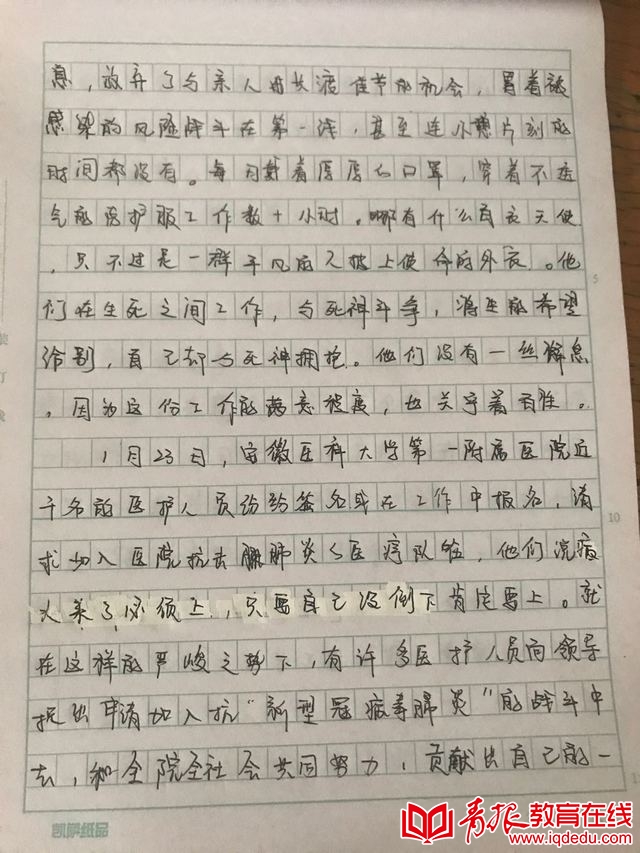 息，放弃了与亲人共长渡佳节的机会，冒着被
感染的风险战斗在第一线，甚至连小憩片刻的
时间都没有。每日戴着厚厚的口罩，穿着不透
气的防护服工作数十小时。哪有什么白衣天使
，只不过是一群平凡的人披上使命的外衣。他
们在生死之间工作，与死神斗争，将生的希望
给别，自己却与死神拥抱。他们没有一丝懈怠
，因为这份工作的，也关乎着百姓。
1月23日，安徽医科大学第一附属医院近
千名的医护人员纷纷签名或在工作中报名，请
求加入医院抗击肺炎医疗队伍，他们说疫
火来了必须上，只要自己没倒下肯定要上。就
在这样的严峻之势下，有许多医护人员向领导
提出申请加入抗“新型冠病毒肺炎”的战斗中
去，和全院全社会共同努力，贡献出自己的一
5
10
凯萨纸品
青报教育在线
www.iqdedu.com